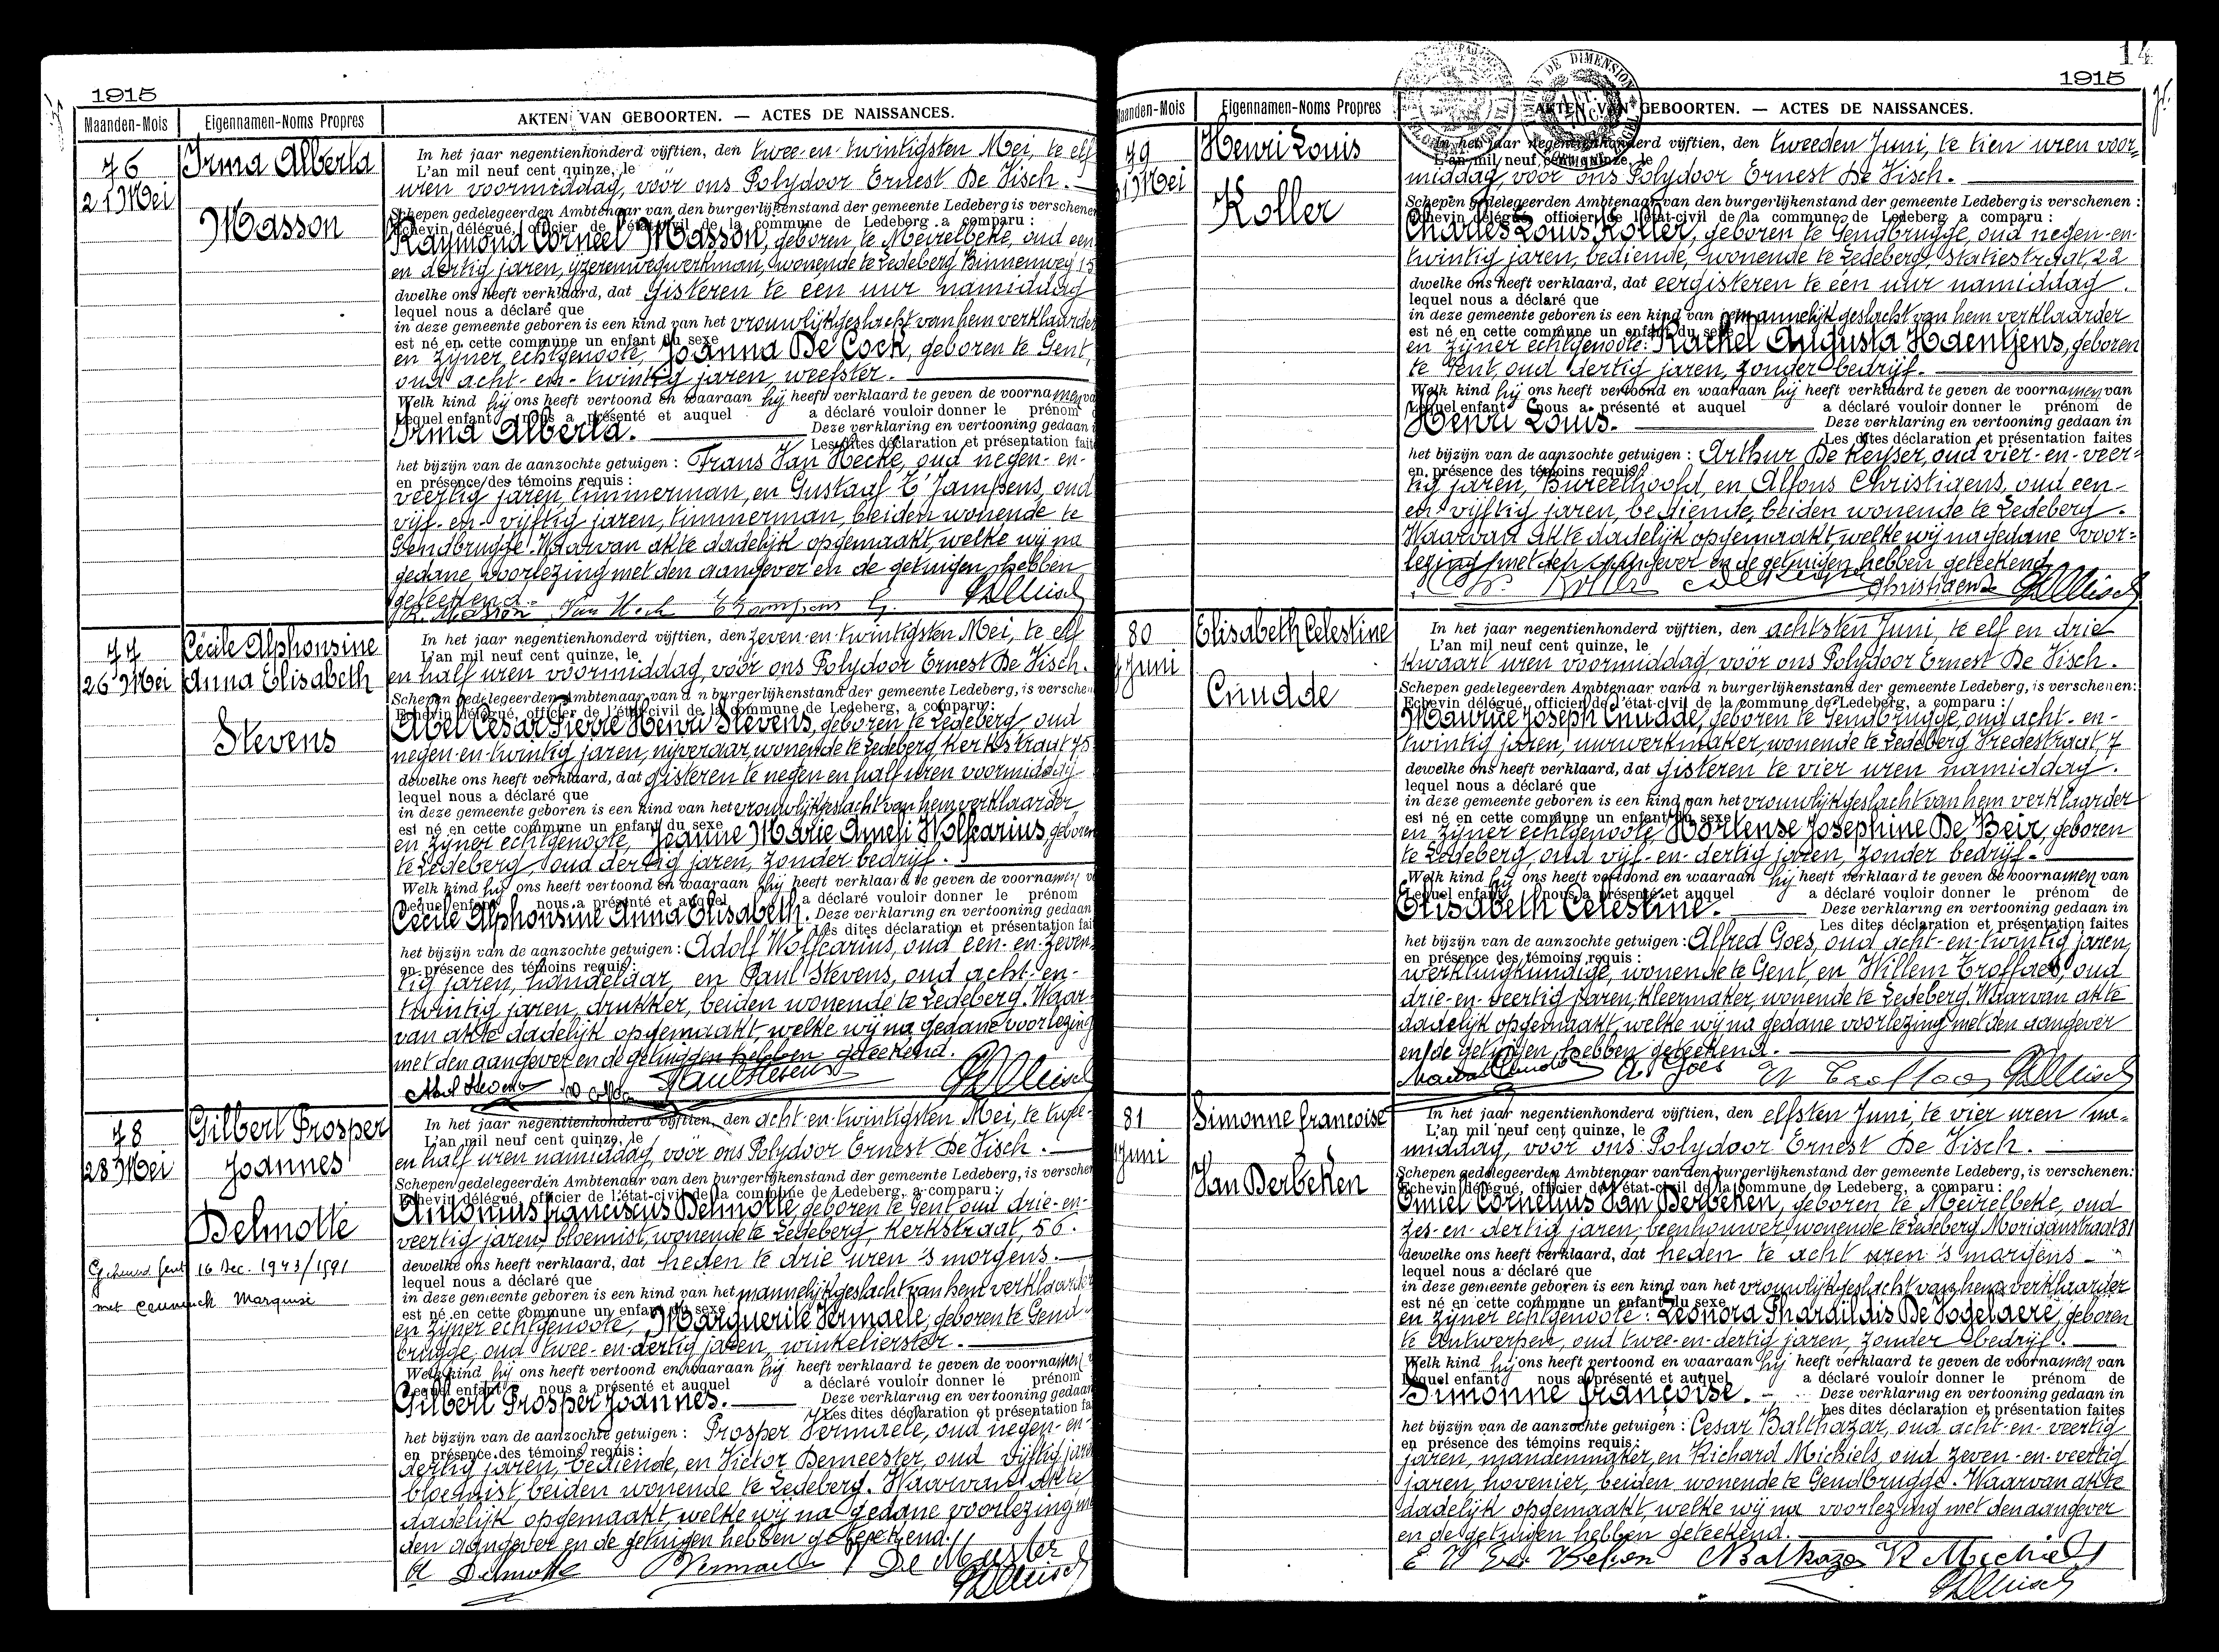 1915
Maanden-Mois Eigennamen-Noms Propres AKTEN VAN GEBOORTEN. — ACTES DE NAISSANCES.
76
21 Mei
Irma Alberta
Masson
In het jaar negentienhonderd vijftien, den twee-en-twintigsten Mei, te elf
L'an mil neuf cent quinze, le
uren voormiddag, voor ons Polydoor Ernest De Visch.
Schepen gedelegeerden Ambtenaar van den burgerlijkenstand der gemeente Ledeberg is verschenen
Echevin délégué, officier de l'état-civil de la commune de Ledeberg a comparu :
Raymond Corneel Masson, geboren te Meirelbeke, oud een-
en dertig jaren, ijzerenwegwerkman, wonende te Ledeberg Binnenweg 15
dwelke ons heeft verklaard, dat gisteren te een uur namiddag
lequel nous a déclaré que
in deze gemeente geboren is een kind van het vrouwlijkgeslacht van hem verklaarder
est né en cette commune un enfant du sexe
en zijner echtgenoote, Joanna De Cock, geboren te Gent,
oud acht-en-twintig jaren, weefster.
Welk kind hij ons heeft vertoond en waaraan hij heeft verklaard te geven de voornamen
Lequel enfant nous a présenté et auquel a déclaré vouloir donner le prénom
Irma Alberta. Deze verklaring en vertooning gedaan
Les dites déclaration et présentation fait
het bijzijn van de aanzochte getuigen : Frans Van Hecke, oud negen-en-
en présence des témoins requis :
veertig jaren, timmerman, en Gustaaf T'Jampens, oud
vijf-en-vijftig jaren, timmerman, beiden wonende te
Gendbrugge. Waarvan akte dadelijk opgemaakt, welke wij na
gedane voorlezing met den aangever en de getuigen hebben
geteekend.
R. Masson Van Heck
77
26 Mei
Cécile Alphonsine
Anna Elisabeth
Stevens
In het jaar negentienhonderd vijftien, den zeven-en-twintigsten Mei, te elf
L'an mil neuf cent quinze, le
en half uren voormiddag, voor ons Polydoor Ernest De Visch.
Schepen gedelegeerden Ambtenaar van d n burgerlijkenstand der gemeente Ledeberg, is versche
Echevin délégué, officier de l'état-civil de la commune de Ledeberg, a comparu:
Abel César Pierre Henri Stevens, geboren te Ledeberg, oud
negen-en-twintig jaren, nijveraar, wonende te Ledeberg, Kerkstraat 75
dewelke ons heeft verklaard, dat gisteren te negen en half uren voormiddag
lequel nous a déclaré que
in deze gemeente geboren is een kind van het vrouwlijkgeslacht van hem verklaarder
est né en cette commune un enfant du sexe
en zijner echtgenoote, Jeanne Marie Ameli Wolfcarius, geboren
te Ledeberg, oud dertig jaren, zonder bedrijf.
Welk kind hij ons heeft vertoond en waaraan hij heeft verklaard te geven de voornamen
Lequel enfant nous a présenté et auquel a déclaré vouloir donner le prénom
Cécile Alphonsine Anna Elisabeth. Deze verklaring en vertooning gedaan
Les dites déclaration et présentation fai
het bijzijn van de aanzochte getuigen : Adolf Wolfcarius, oud een-en-zeven-
en présence des témoins requis :
tig jaren, handelaar, en Paul Stevens, oud acht-en-
twintig jaren, drukker, beiden wonende te Ledeberg. Waar-
van akte dadelijk opgemaakt, welke wij na gedane voorlezing
met den aangever en de getuigen hebben geteekend.
Abel Stevens Paul Stevens
78
28 Mei
Gilbert Prosper
Joannes
Delmotte
Gehuwd Gent 16 Dec. 1943/1591
met
In het jaar negentienhonderd vijftien, den acht-en-twintigsten Mei, te twee-
L'an mil neuf cent quinze, le
en half uren namiddag, voor ons Polydoor Ernest De Visch.
Schepen gedelegeerden Ambtenaar van den burgerlijkenstand der gemeente Ledeberg, is verschen
Echevin délégué, officier de l'état-civil de la commune de Ledeberg, a comparu :
Antonius franciscus Delmotte, geboren te Gent oud drie-en-
veertig jaren, bloemist, wonende te Ledeberg, Kerkstraat, 56.
dewelke ons heeft verklaard, dat heden te drie uren 's morgens.
lequel nous a déclaré que
in deze gemeente geboren is een kind van het mannelijkgeslacht van hem verklaarder
est né en cette commune un enfant du sexe
en zijner echtgenoote, Marguerite Vermaele, geboren te Gend-
brugge, oud twee-en-dertig jaren, winkelierster.
Welk kind hij ons heeft vertoond en waaraan hij heeft verklaard te geven de voornamen
Lequel enfant nous a présenté et auquel a déclaré vouloir donner le prénom
Gilbert Prosper Joannes. Deze verklaring en vertooning gedaan
Les dites déclaration et présentation fa
het bijzijn van de aanzochte getuigen : Prosper Vermaele, oud negen-en-
en présence des témoins requis :
dertig jaren, bediende, en Victor Demeester, oud vijftig jaren
bloemist, beiden wonende te Ledeberg. Waarvan akte
dadelijk opgemaakt, welke wij na gedane voorlezing me
den aangever en de getuigen hebben geteekend.
A Delmotte PVermaele V De Meester
14
1915
Maanden-Mois Eigennamen-Noms Propres AKTEN VAN GEBOORTEN. — ACTES DE NAISSANCES.
79
31 Mei
Henri Louis
Koller
In het jaar negentienhonderd vijftien, den tweeden Juni, te tien uren voor-
L'an mil neuf cent quinze, le
middag, voor ons Polydoor Ernest De Visch.
Schepen gedelegeerden Ambtenaar van den burgerlijkenstand der gemeente Ledeberg is verschenen :
Echevin délégué officier de l'état-civil de la commune de Ledeberg a comparu :
Charles Louis Koller, geboren te Gendbrugge, oud negen-en-
twintig jaren, bediende, wonende te Ledeberg, Statiestraat, 22
dwelke ons heeft verklaard, dat eergisteren te één uur namiddag.
lequel nous a déclaré que
in deze gemeente geboren is een kind van het mannelijk geslacht van hem verklaarder
est né en cette commune un enfant du sexe
en zijner echtgenoote: Rachel Augusta Haentjens, geboren
te Gent, oud dertig jaren, zonder bedrijf.
Welk kind hij ons heeft vertoond en waaraan hij heeft verklaard te geven de voornamen van
Lequel enfant nous a présenté et auquel a déclaré vouloir donner le prénom de
Henri Louis. Deze verklaring en vertooning gedaan in
Les dites déclaration et présentation faites
het bijzijn van de aanzochte getuigen : Arthur De Keyser, oud vier-en-veer-
en présence des témoins requis :
tig jaren, Bureelhoofd, en Alfons Christiaens, oud een-
en-vijftig jaren, bediende, beiden wonende te Ledeberg.
Waarvan akte dadelijk opgemaakt welke wij na gedane voor-
lezing met den aangever en de getuigen hebben geteekend
Ch. Koller De Keyser Christiaens
80
7 Juni
Elisabeth Celestine
Cnudde
In het jaar negentienhonderd vijftien, den achtsten Juni, te elf en drie
L'an mil neuf cent quinze, le
kwaart uren voormiddag, voor ons Polydoor Ernest De Visch.
Schepen gedelegeerden Ambtenaar van d n burgerlijkenstand der gemeente Ledeberg, is verschenen:
Echevin délégué, officier de l'état-civil de la commune de Ledeberg, a comparu :
Maurice Joseph Cnudde, geboren te Gendbrugge, oud acht-en-
twintig jaren, uurwerkmaker, wonende te Ledeberg Vredestraat, 7
dewelke ons heeft verklaard, dat gisteren te vier uren namiddag.
lequel nous a déclaré que
in deze gemeente geboren is een kind van het vrouwlijkgeslacht van hem verklaarder
est né en cette commune un enfant du sexe
en zijner echtgenoote, Hortense Josephine De Beir, geboren
te Ledeberg, oud vijf-en-dertig jaren, zonder bedrijf.
Welk kind hij ons heeft vertoond en waaraan hij heeft verklaard te geven de voornamen van
Lequel enfant nous a présenté et auquel a déclaré vouloir donner le prénom de
Elisabeth Celestine. Deze verklaring en vertooning gedaan in
Les dites déclaration et présentation faites
het bijzijn van de aanzochte getuigen : Alfred Goes, oud acht-en-twintig jaren,
en présence des témoins requis :
werktuigkundige, wonende te Gent, en Willem Troffaes, oud
drie-en-veertig jaren, kleermaker, wonende te Ledeberg. Waarvan akte
dadelijk opgemaakt, welke wij na gedane voorlezing met den aangever
en de getuigen hebben geteekend.
Maurice Cnudde A. Goes W Troffaes
81
Juni
Simonne françoise
Van Derbeken
In het jaar negentienhonderd vijftien, den elfsten Juni, te vier uren na-
L'an mil neuf cent quinze, le
middag, voor ons Polydoor Ernest De Visch.
Schepen gedelegeerden Ambtenaar van den burgerlijkenstand der gemeente Ledeberg, is verschenen:
Echevin délégué, officier de l'état-civil de la commune de Ledeberg, a comparu :
Emiel Cornelius Van Derbeken, geboren te Meirelbeke, oud
zes-en-dertig jaren, beenhouwer, wonende te Ledeberg Moriaanstraat 31
dewelke ons heeft verklaard, dat heden te acht uren 's morgens
lequel nous a déclaré que
in deze gemeente geboren is een kind van het vrouwlijkgeslacht van hem verklaarder
est né en cette commune un enfant du sexe
en zijner echtgenoote : Leonora Pharaïldis De Vogelaere, geboren
te Antwerpen, oud twee-en-dertig jaren, zonder bedrijf.
Welk kind hij ons heeft vertoond en waaraan hij heeft verklaard te geven de voornamen van
Lequel enfant nous a présenté et auquel a déclaré vouloir donner le prénom de
Simonne françoise. Deze verklaring en vertooning gedaan in
Les dites déclaration et présentation faites
het bijzijn van de aanzochte getuigen : Cesar Balthazar, oud acht-en-veertig
en présence des témoins requis :
jaren, mandenmaker, en Richard Michiels, oud zeven-en-veertig
jaren, hovenier, beiden wonende te Gendbrugge. Waarvan akte
dadelijk opgemaakt, welke wij na voorlezing met den aangever
en de getuigen hebben geteekend.
E V Der Beken Balthazar R Michiels